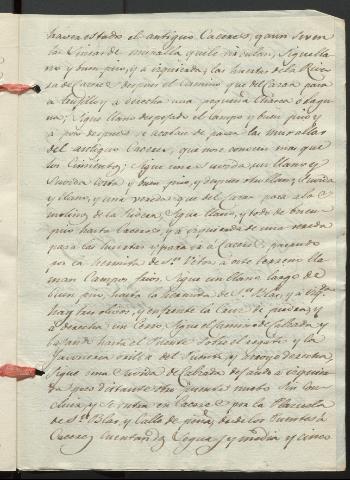 haver estado el antiguo Caceres, y aun se ven
las Cimientos de muralla que le circulan; Sigue lla-
no y buen piso, y a izquierda, las huertas de la Rive-
ra de Caceres despues el Camino que del Casar para
a Trujillo y a derecha una pequeña Charca o lagu-
na; Sigue llano despejado el campo y buen piso y
a poco despues, se acaban de pasar las murallas
del antiguo Caceres, que no se conocen mas que
los Cimientos; Sigue una subida, un llano y
subida corta y buen piso, y despues otro llano, subida
y llano, y una vereda que del Casar pasa a los
molinos de la Rivera, Sigue llano, y todo de buen
piso hasta Caceres, y a izquierda de una vereda
para las huertas y para ir a Caceres, pasando
por la hermita de Sn. Vito, a este terreno lla-
man Campo frio, Sigue un llano largo de
buen piso hasta la hermita de Sn. Blas, y a
hay los olivos, y enfrente la Cruz de piedra, y
a derecha un Cerro Sigue el Camino de Calzada, y
bajando hasta el Puente sobre el regato y la
orilla del Puente, y arroyo derecha,
sigue una subida de Calzada dejando a izquier-
da poco distante otro puente malo sin con-
cluir, y se entra en Caceres por la Plazuela
de Sn. Blas, y Calle de de los Puentes a
Caceres cuentan dos leguas y media y cinco